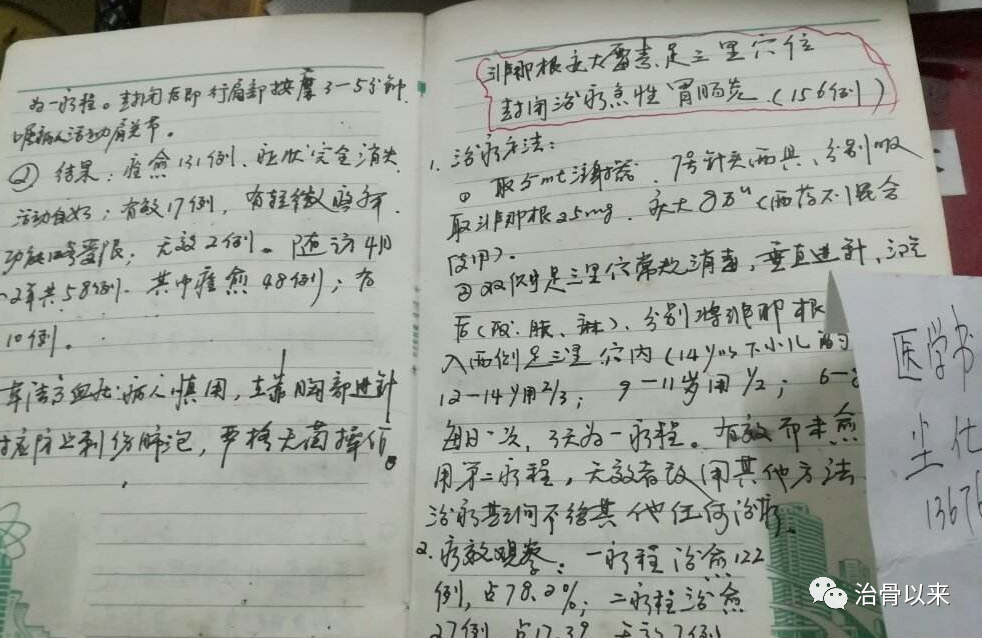 为一疗程。封闭后即行局部按摩3—5分钟.
嘱病人活动肩关节。
② 结果:痊愈131例、症状完全消失
活动自如;有效17例,有轻微
功能略受限;无效2例。随访4月
-2年共58例.其中痊愈48例;有
10例。
本法高血压病人慎用,在靠胸部进针
时应防止刺伤肺泡,严格无菌操作。
非那根庆大霉素足三里穴位
封闭治疗急性胃肠炎.(156例)
1. 治疗方法:
① 取5ml注射器、7号针头两具、分别吸
取非那根25mg.庆大8万u(两药不可混合
使用).
②双侧足三里穴常规消毒,垂直进针,
后(酸.胀、麻)、分别将非那根
入两侧足三里穴内(14岁以下小儿酌
12-14岁用2/3; 9-11岁用1/2; 6-8
每日一次,3天为一疗程。有效而未愈
用第二疗程,无效者改用其他方法
治疗期间不给其他任何治疗.
2. 疗效观察:一疗程治愈122
例,占78.2%;二疗程治愈
27例.占17.3%.无效7例
医学书
13676
治骨以来